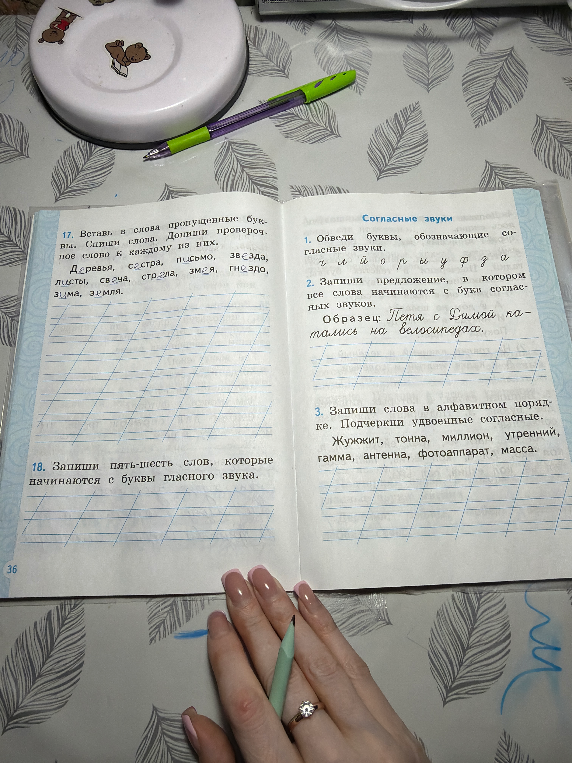 17. Вставь в слова пропущенные бук-
вы. Спиши слова. Допиши провероч-
ное слово к каждому из них.
Деревья, сестра, письмо, звезда,
листы, свеча, стрела, змея, гнездо,
зима, земля.
18. Запиши пять-шесть слов, которые
начинаются с буквы гласного звука.
36
Согласные звуки
1. Обведи буквы, обозначающие со-
гласные звуки.
ч л й о р и у ф з а
2. Запиши предложение, в котором
все слова начинаются с букв соглас-
ных звуков.
Образец: Петя с Димой ка-
тались на велосипедах.
3. Запиши слова в алфавитном поряд-
ке. Подчеркни удвоенные согласные.
Жужжит, тонна, миллион, утренний,
гамма, антенна, фотоаппарат, масса.